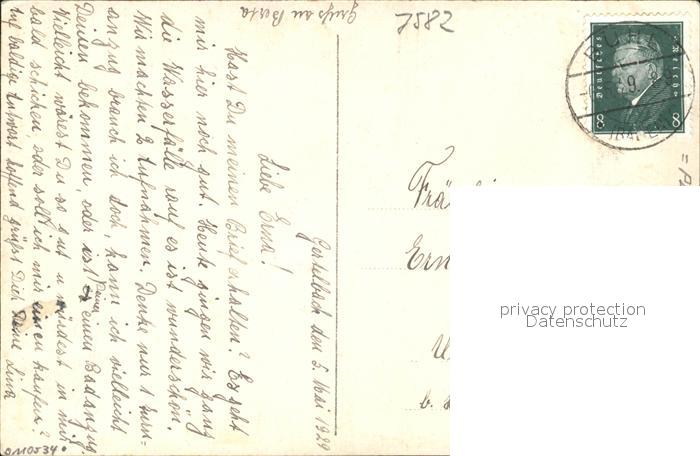 Gruß an Berta
7582
Deutsches Reich
8 8
BÜHL
(BADEN)
Gertelbach den 5. Mai 1929
Liebe Erna!
Hast Du meinen Brief erhalten? Es geht
mir hier noch gut. Heute gingen wir ganz
die Wasserfälle rauf es ist wunderschön.
Wir machten 2 Aufnahmen. Denke nur 1 Turn-
anzug brauch ich doch, kann ich vielleicht
Deinen bekommen, oder ist Deine einen Badanzug.
Vielleicht wärest Du so gut u würdest in mir
bald schicken, oder soll ich mir einen kaufen?
Auf baldige Antwort hoffend grüßt Dich Deine Lina
Frä
Ern
U
b.
privacy protection
Datenschutz